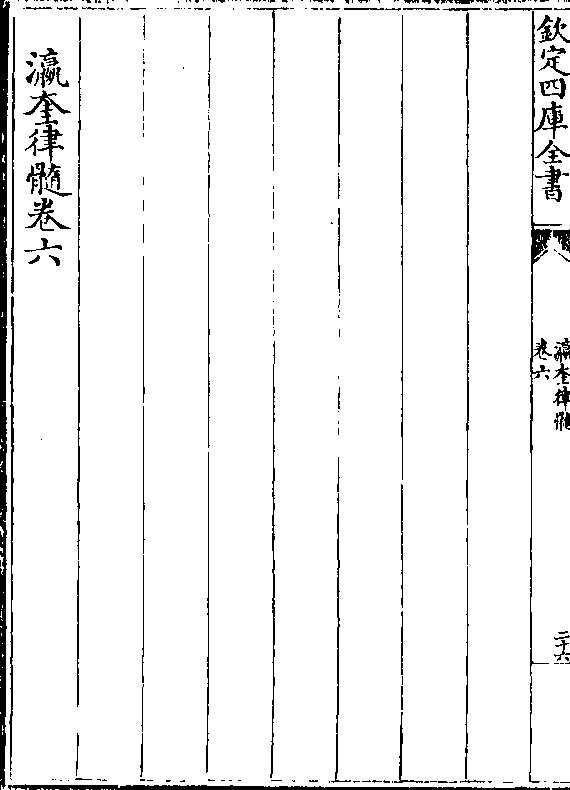 欽定四庫全書
瀛奎律髓
卷六
二十六
瀛奎律髓卷六